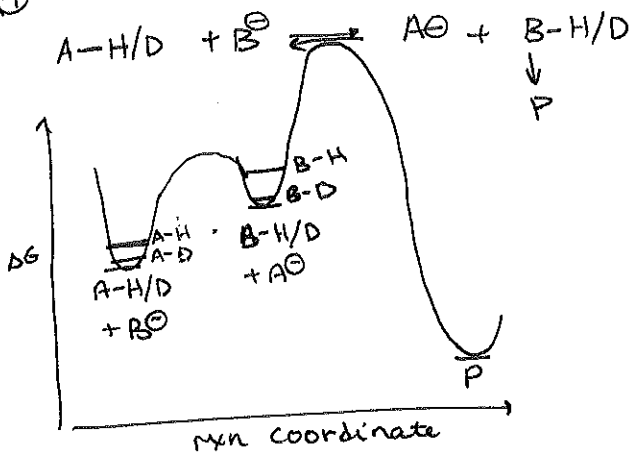 ①
A–H/D + B⊖ ⇌ A⊖ + B–H/D
↓
P
ΔG
A–H
A–D
A–H/D
+ B⊖
B–H
B–D
B–H/D
+ A⊖
P
rxn coordinate